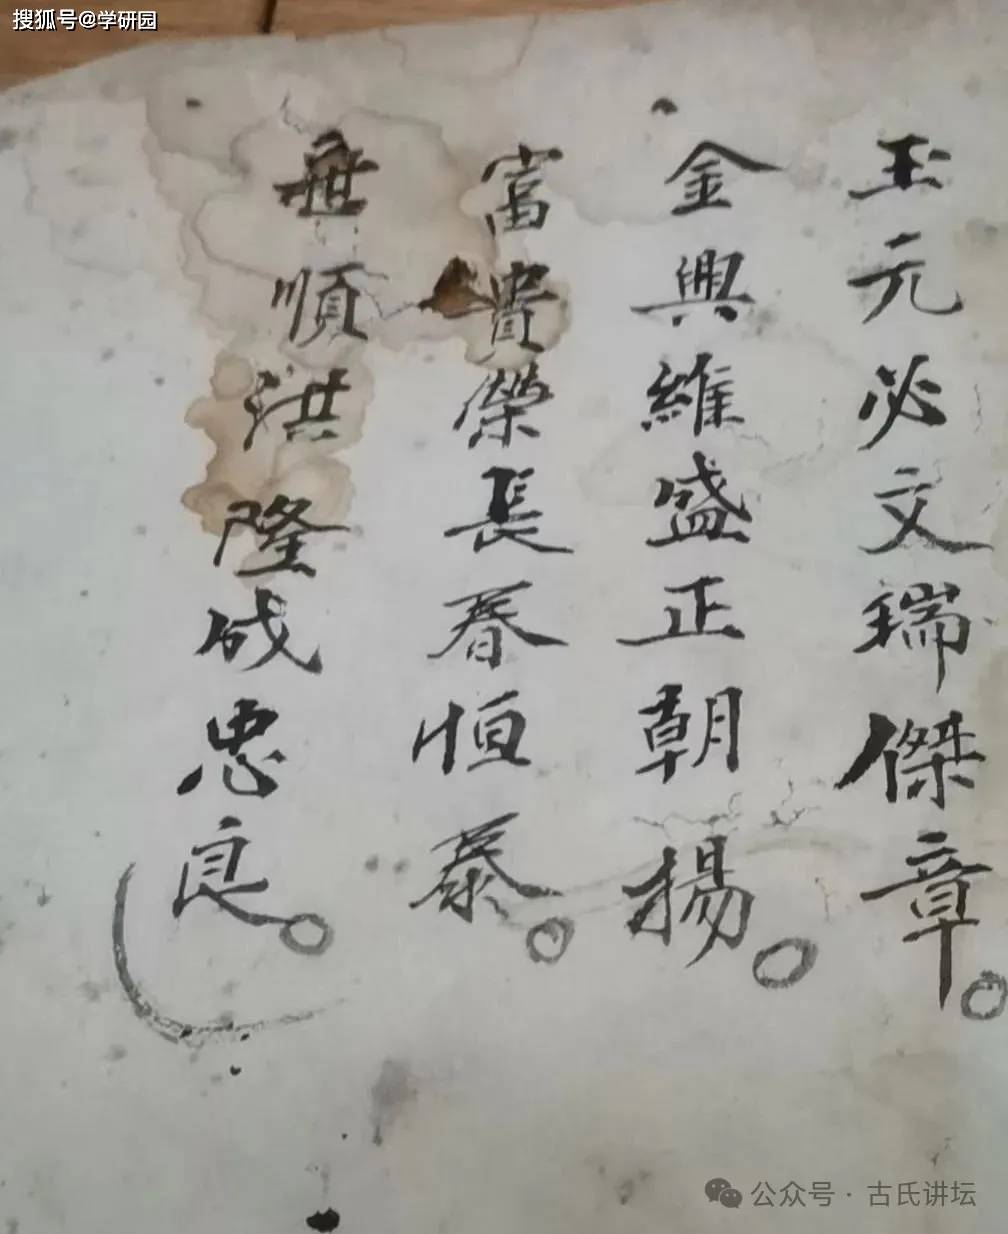 搜狐号@学研园
玉元必文瑞傑章。
金興維盛正朝揚。
富貴榮長春恒泰。
世順洪隆成忠良。
公众号·古氏讲坛